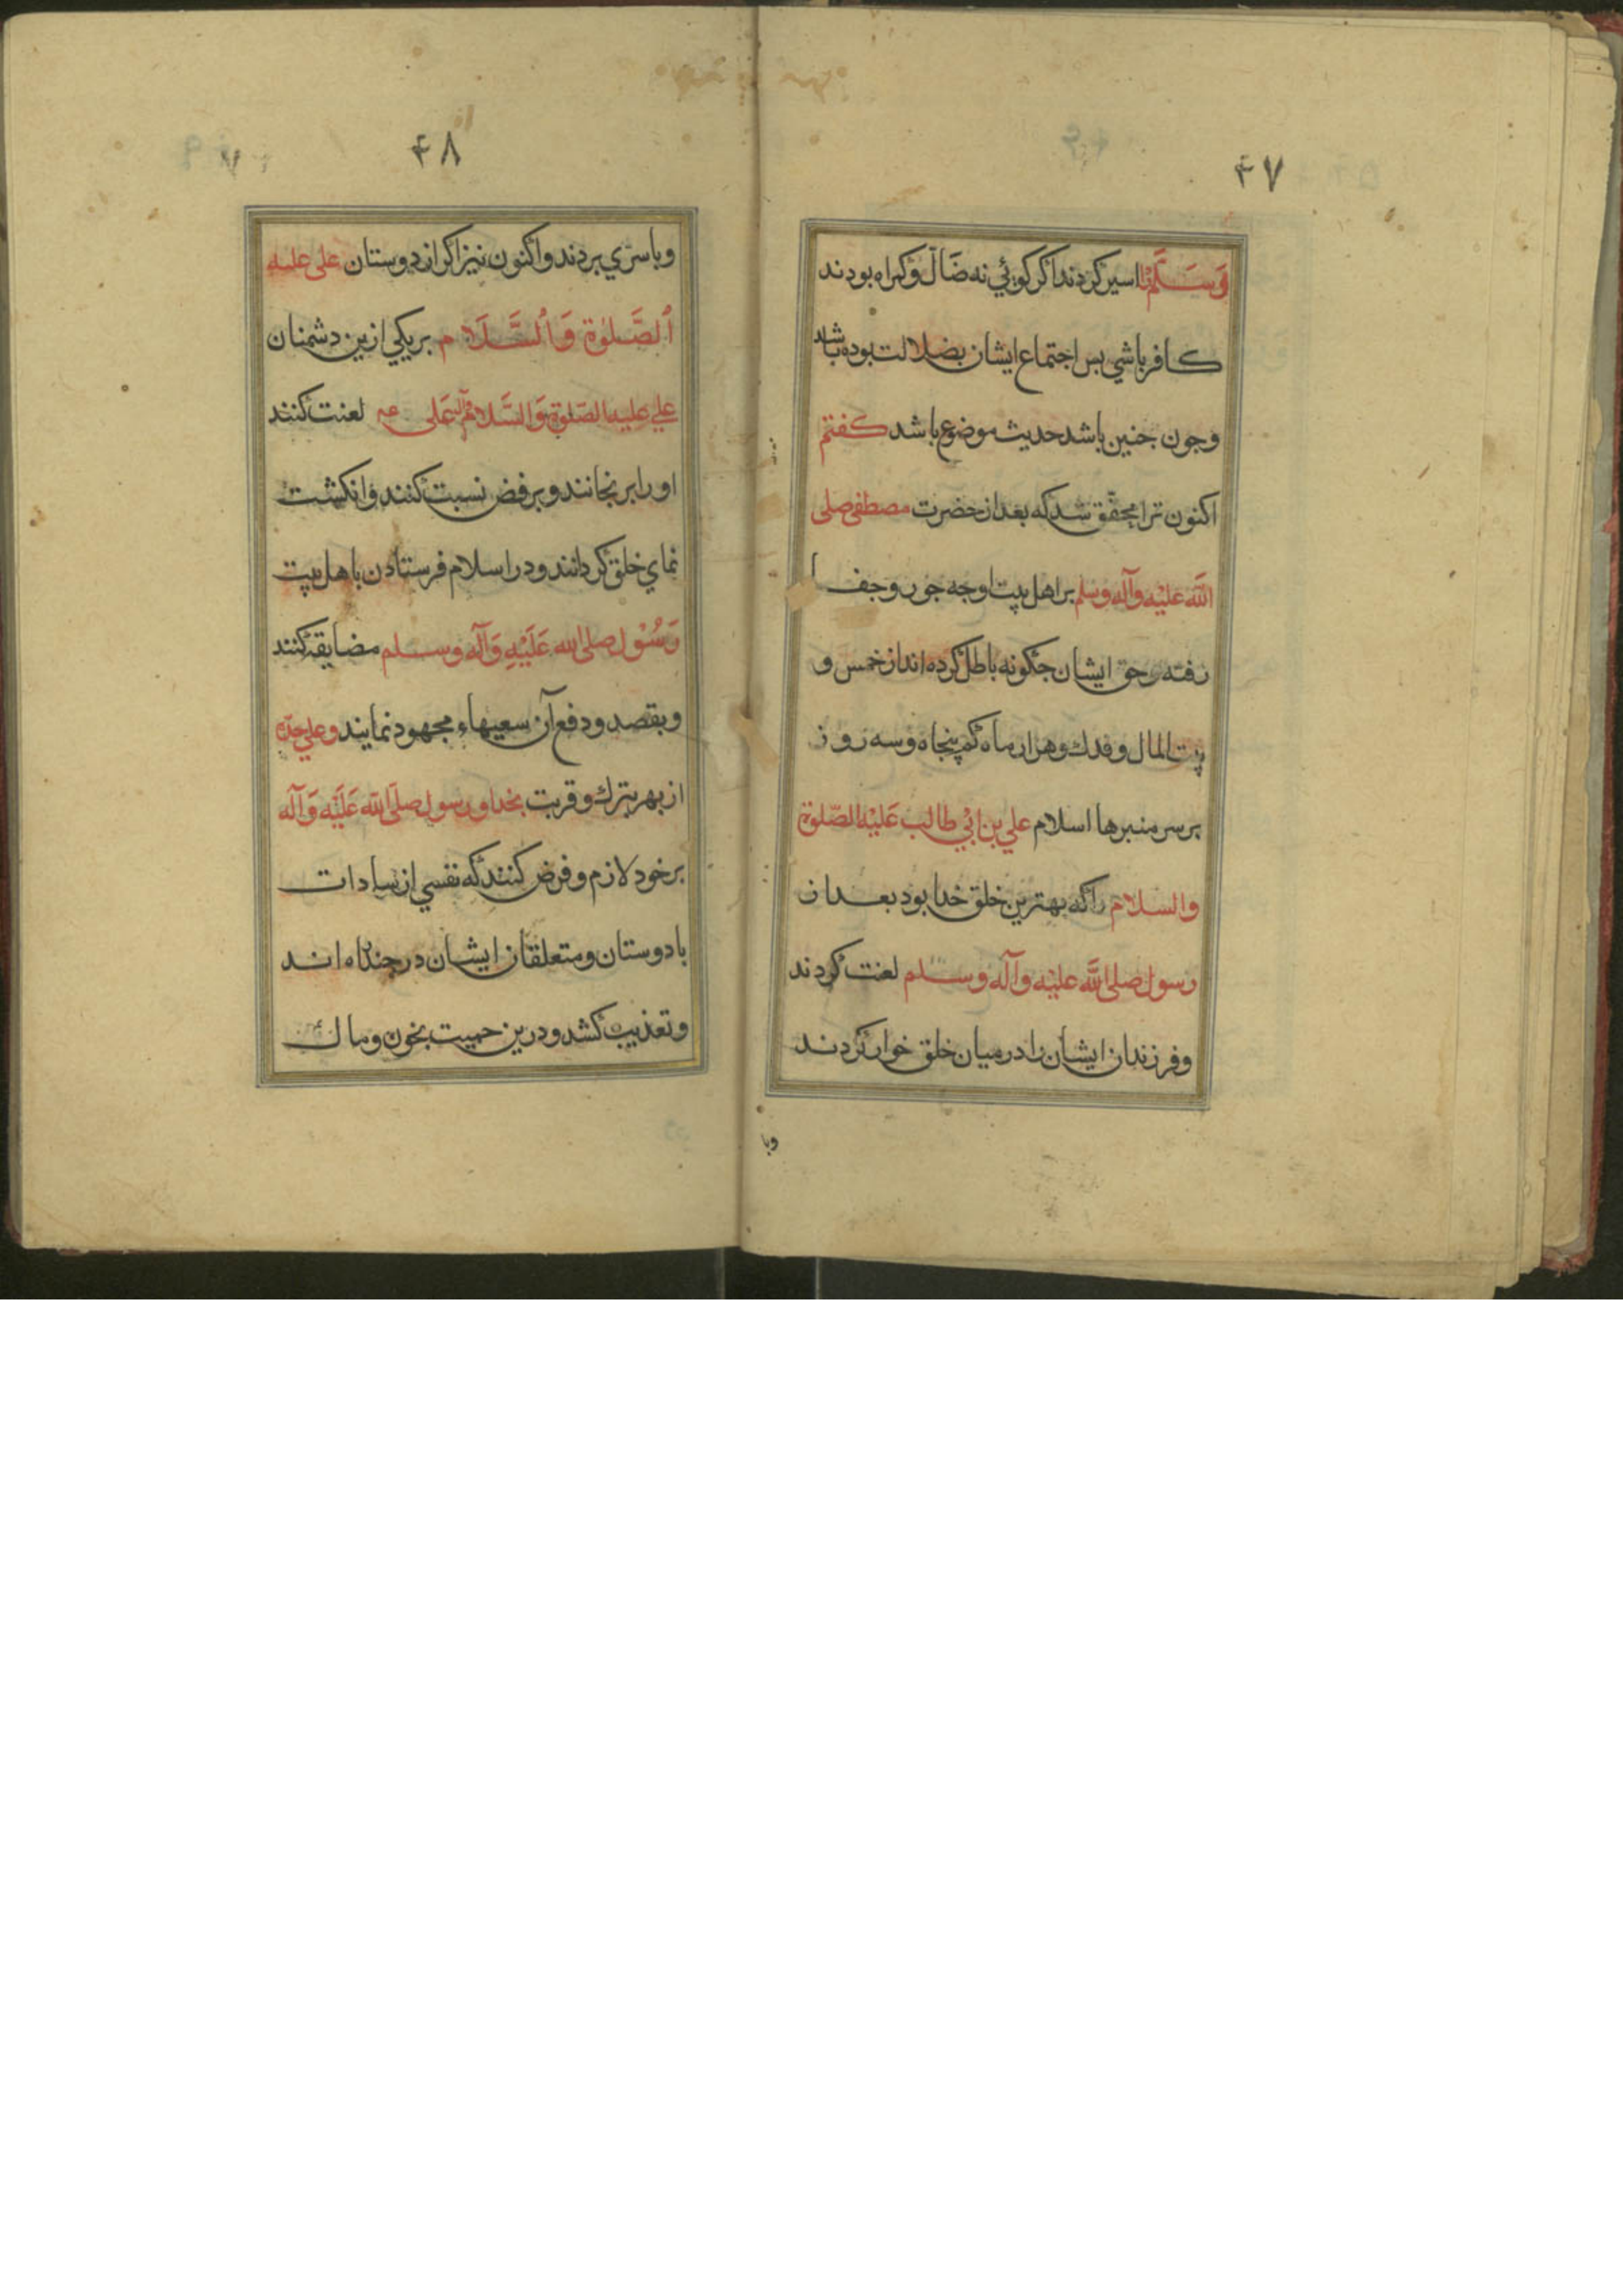 ۴۷
وَسَلَّمْ را اسیر کردند اکر کوئي نه ضَالّ و کمراه بودند
کافر باشي بس اجتماع ایشان بضلالت بوده باشد
وجون جنین باشد حدیث موضوع باشد کفتم
اکنون ترا محقّق شد که بعد از حضرت مصطفی صلی
اللّه علیْه وآله وسلم بر اهل بیت او جه جور و جفا
رفته و حق ایشان جکونه باطل کرده اند از خمس و
بیت المال و فدك و هزار ماه کم پنجاه و سه روز
بر سر منبرها اسلام علي بن ابْي طالب عَلَیْه الصّلوة
والسلام را که بهترین خلق خدا بود بعد از
رسول صلی اللَّه علیْه وآله وسلم لعنت کردند
وفرزندان ایشان را درمیان خلق خوار کردند
وبا
۴۸
وباسري بردند واکنون نیز اکر از دوستان علی علیه
اَلصَّلوٰة وَاْلسَّلَام بر یکي ازین دشمنان
علي علیه الصّلوة وَالسَّلام لعنت کنند
او را برنجانند و برفض نسبت کنند و انکشت
نماي خلق کردانند و در اسلام فرستادن باهل بیت
رَسُوْل صلی الله عَلَیْهِ وَآله وسلم مضایقه کنند
وبقصد ودفع آن سعیهاء مجهود نمایند وعلي جدّه
از بهر تبرك و قربت بخدا ورسول صلّی اللّه عَلَیْه وَآله
بر خود لازم و فرض کنند که نفسي از سادات
با دوستان و متعلقان ایشان در جند اند
وتعذیب کشد ودرین حمیت بخون ومال